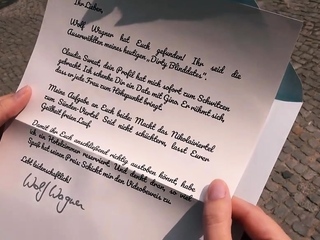 Ihr Lieben,
Wolf Wagner hat Euch gefunden! Ihr seid die
Auserwählten meines heutigen „Dirty Blinddates".
Claudia Sweat, dein Profil hat mich sofort zum Schwitzen
gebracht. Ich schenke Dir ein Date mit Gino. Er rühmt sich
dass er jede Frau zum Höhepunkt bringt.
Meine Aufgabe an Euch beide: Macht das Nikolaiviertel
zum Sünden-Viertel. Seid nicht schüchtern, lasst Eurer
Geilheit freien Lauf.
Damit Ihr Euch anschließend richtig austoben könnt, habe
ich ein Hotelzimmer reserviert. Und denkt dran, so viel
Spaß hat seinen Preis: Schickt mir den Videobeweis zu.
Lebt leidenschaftlich!
Wolf Wagner